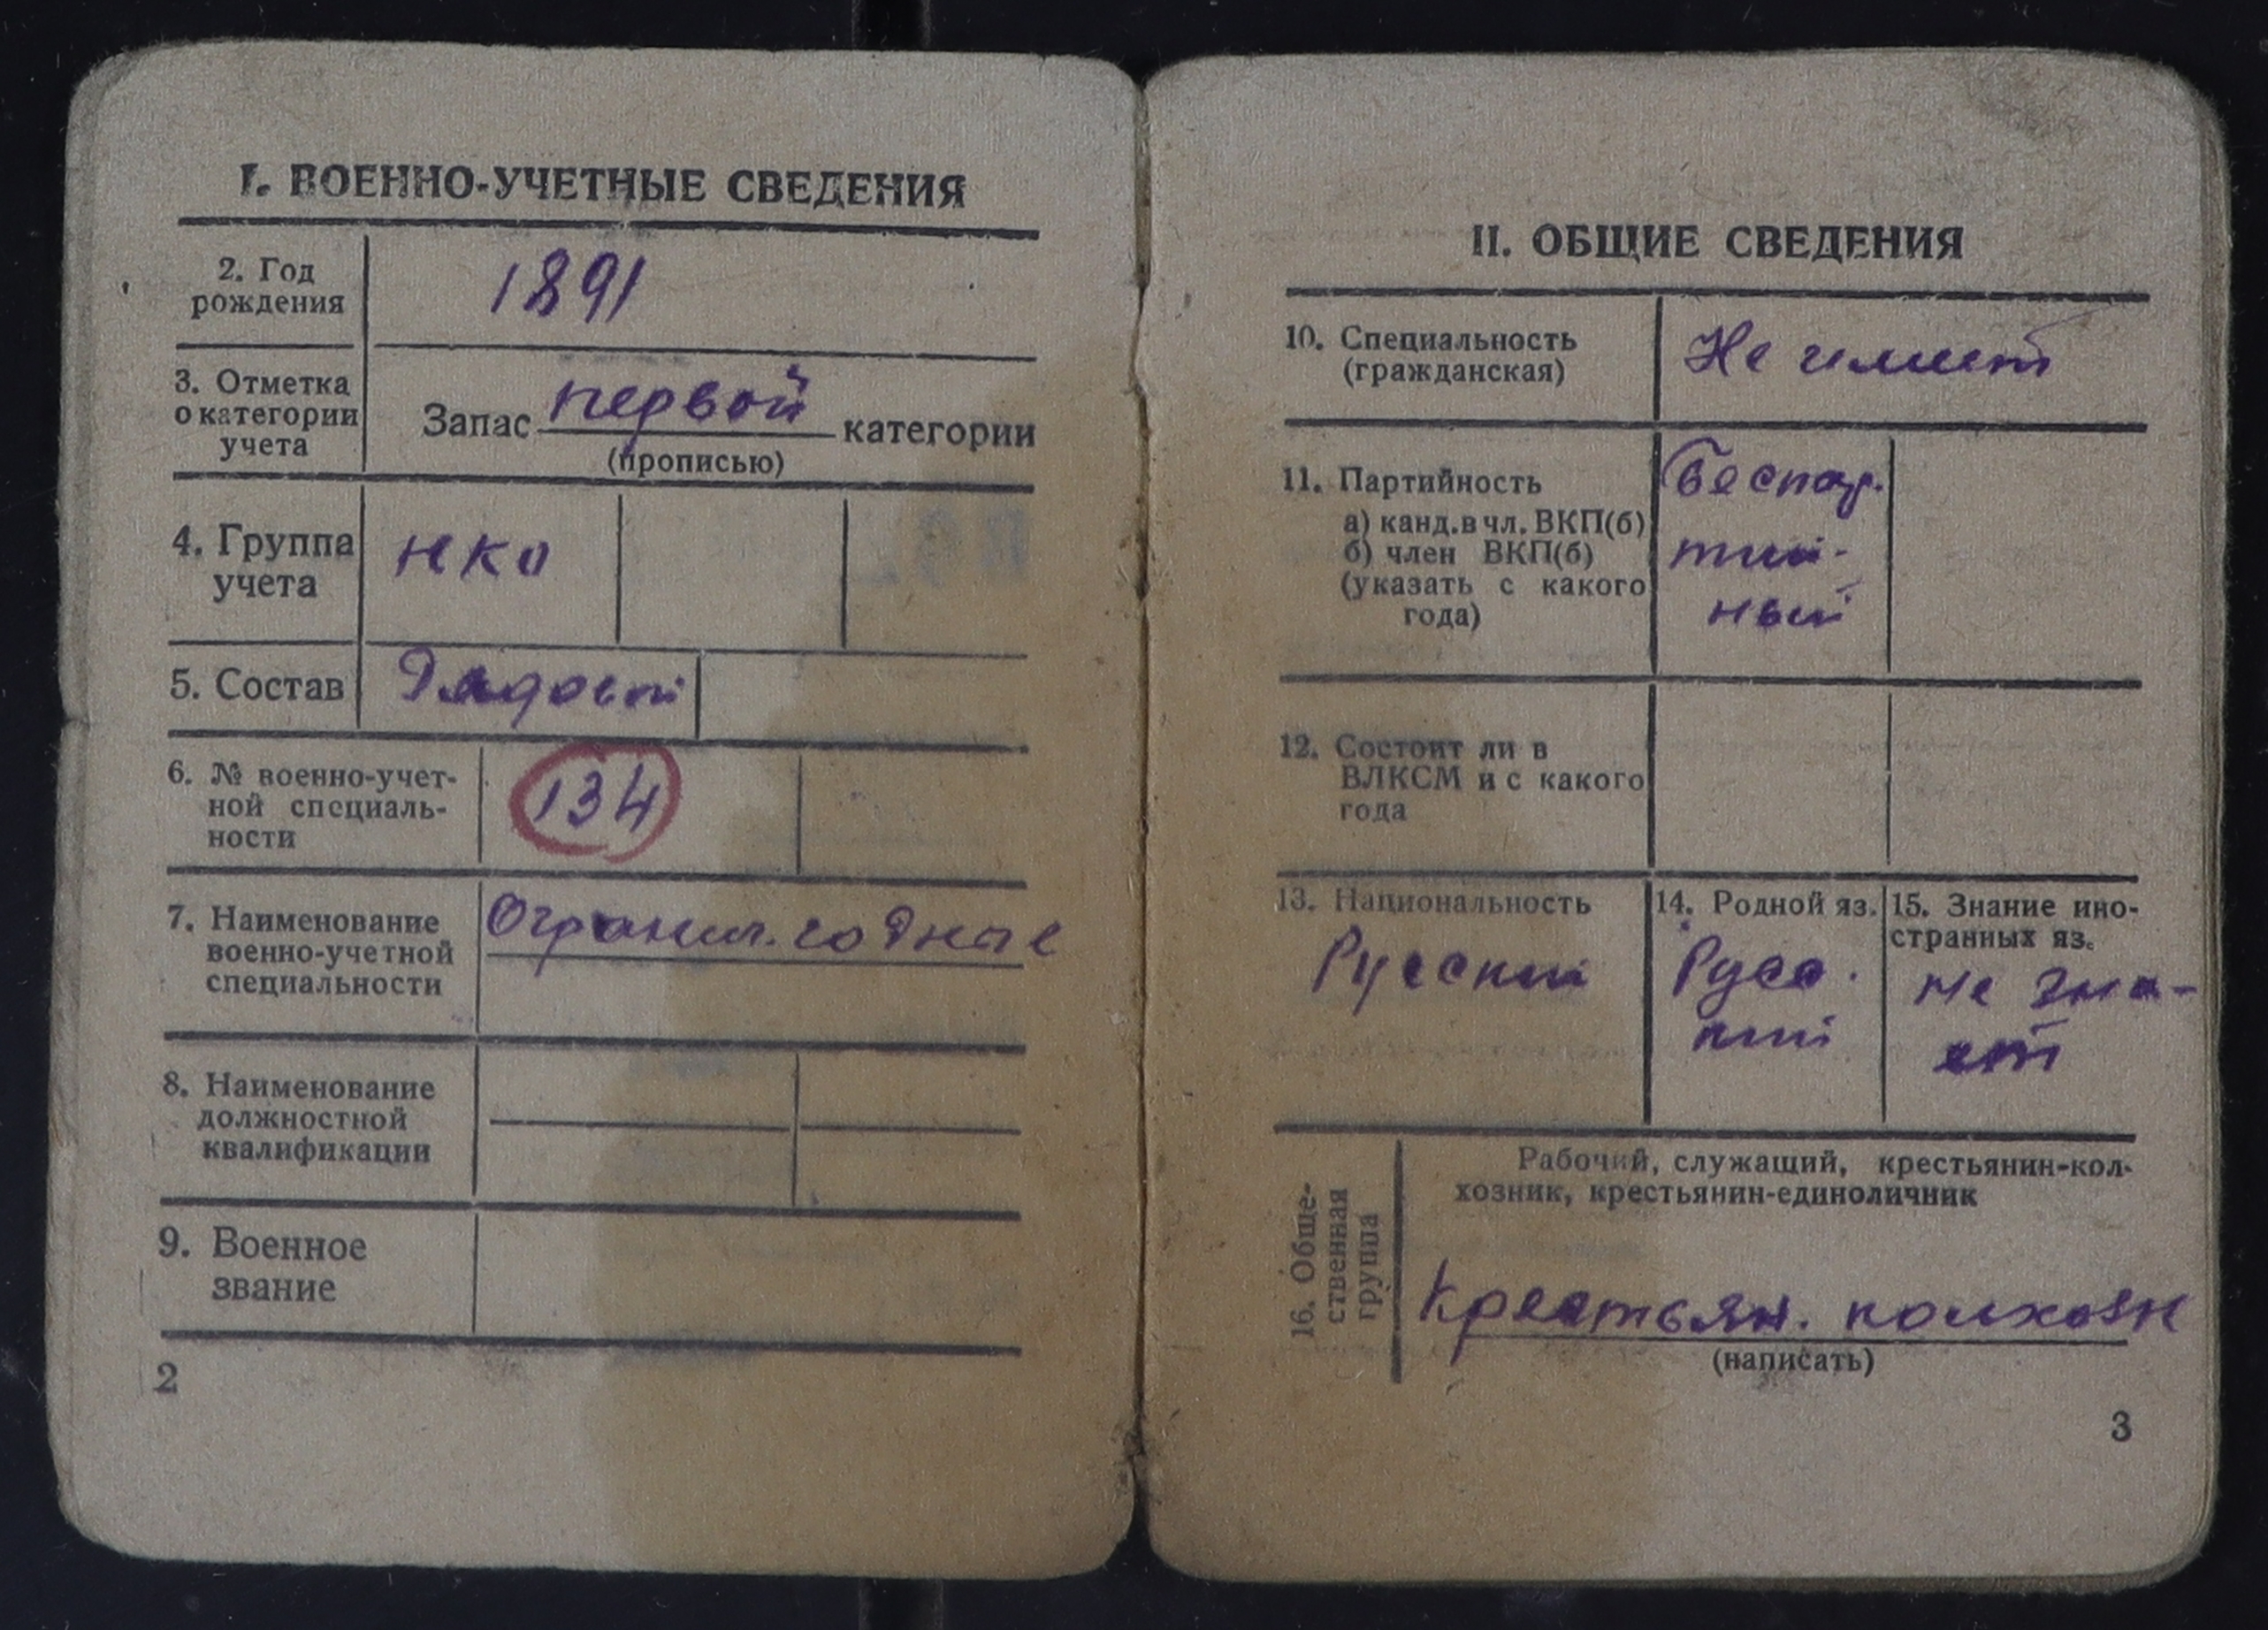 I. ВОЕННО-УЧЕТНЫЕ СВЕДЕНИЯ
2. Год
рождения
1891
3. Отметка
о категории
учета
Запас первой категории
(прописью)
4. Группа
учета
НКО
5. Состав
Рядовой
6. № военно-учет-
ной специаль-
ности
134
7. Наименование
военно-учетной
специальности
Огранич. годные
8. Наименование
должностной
квалификации
9. Военное
звание
2
II. ОБЩИЕ СВЕДЕНИЯ
10. Специальность
(гражданская)
Не имеет
11. Партийность
а) канд. в чл. ВКП(б)
б) член ВКП(б)
(указать с какого
года)
Беспар-
тий-
ный
12. Состоит ли в
ВЛКСМ и с какого
года
13. Национальность
Русский
14. Родной яз.
Русс.
кий
15. Знание ино-
странных яз.
не зна-
ет
16. Обще-
ственная
группа
Рабочий, служащий, крестьянин-кол-
хозник, крестьянин-единоличник
Крестьян. колхозн
(написать)
3